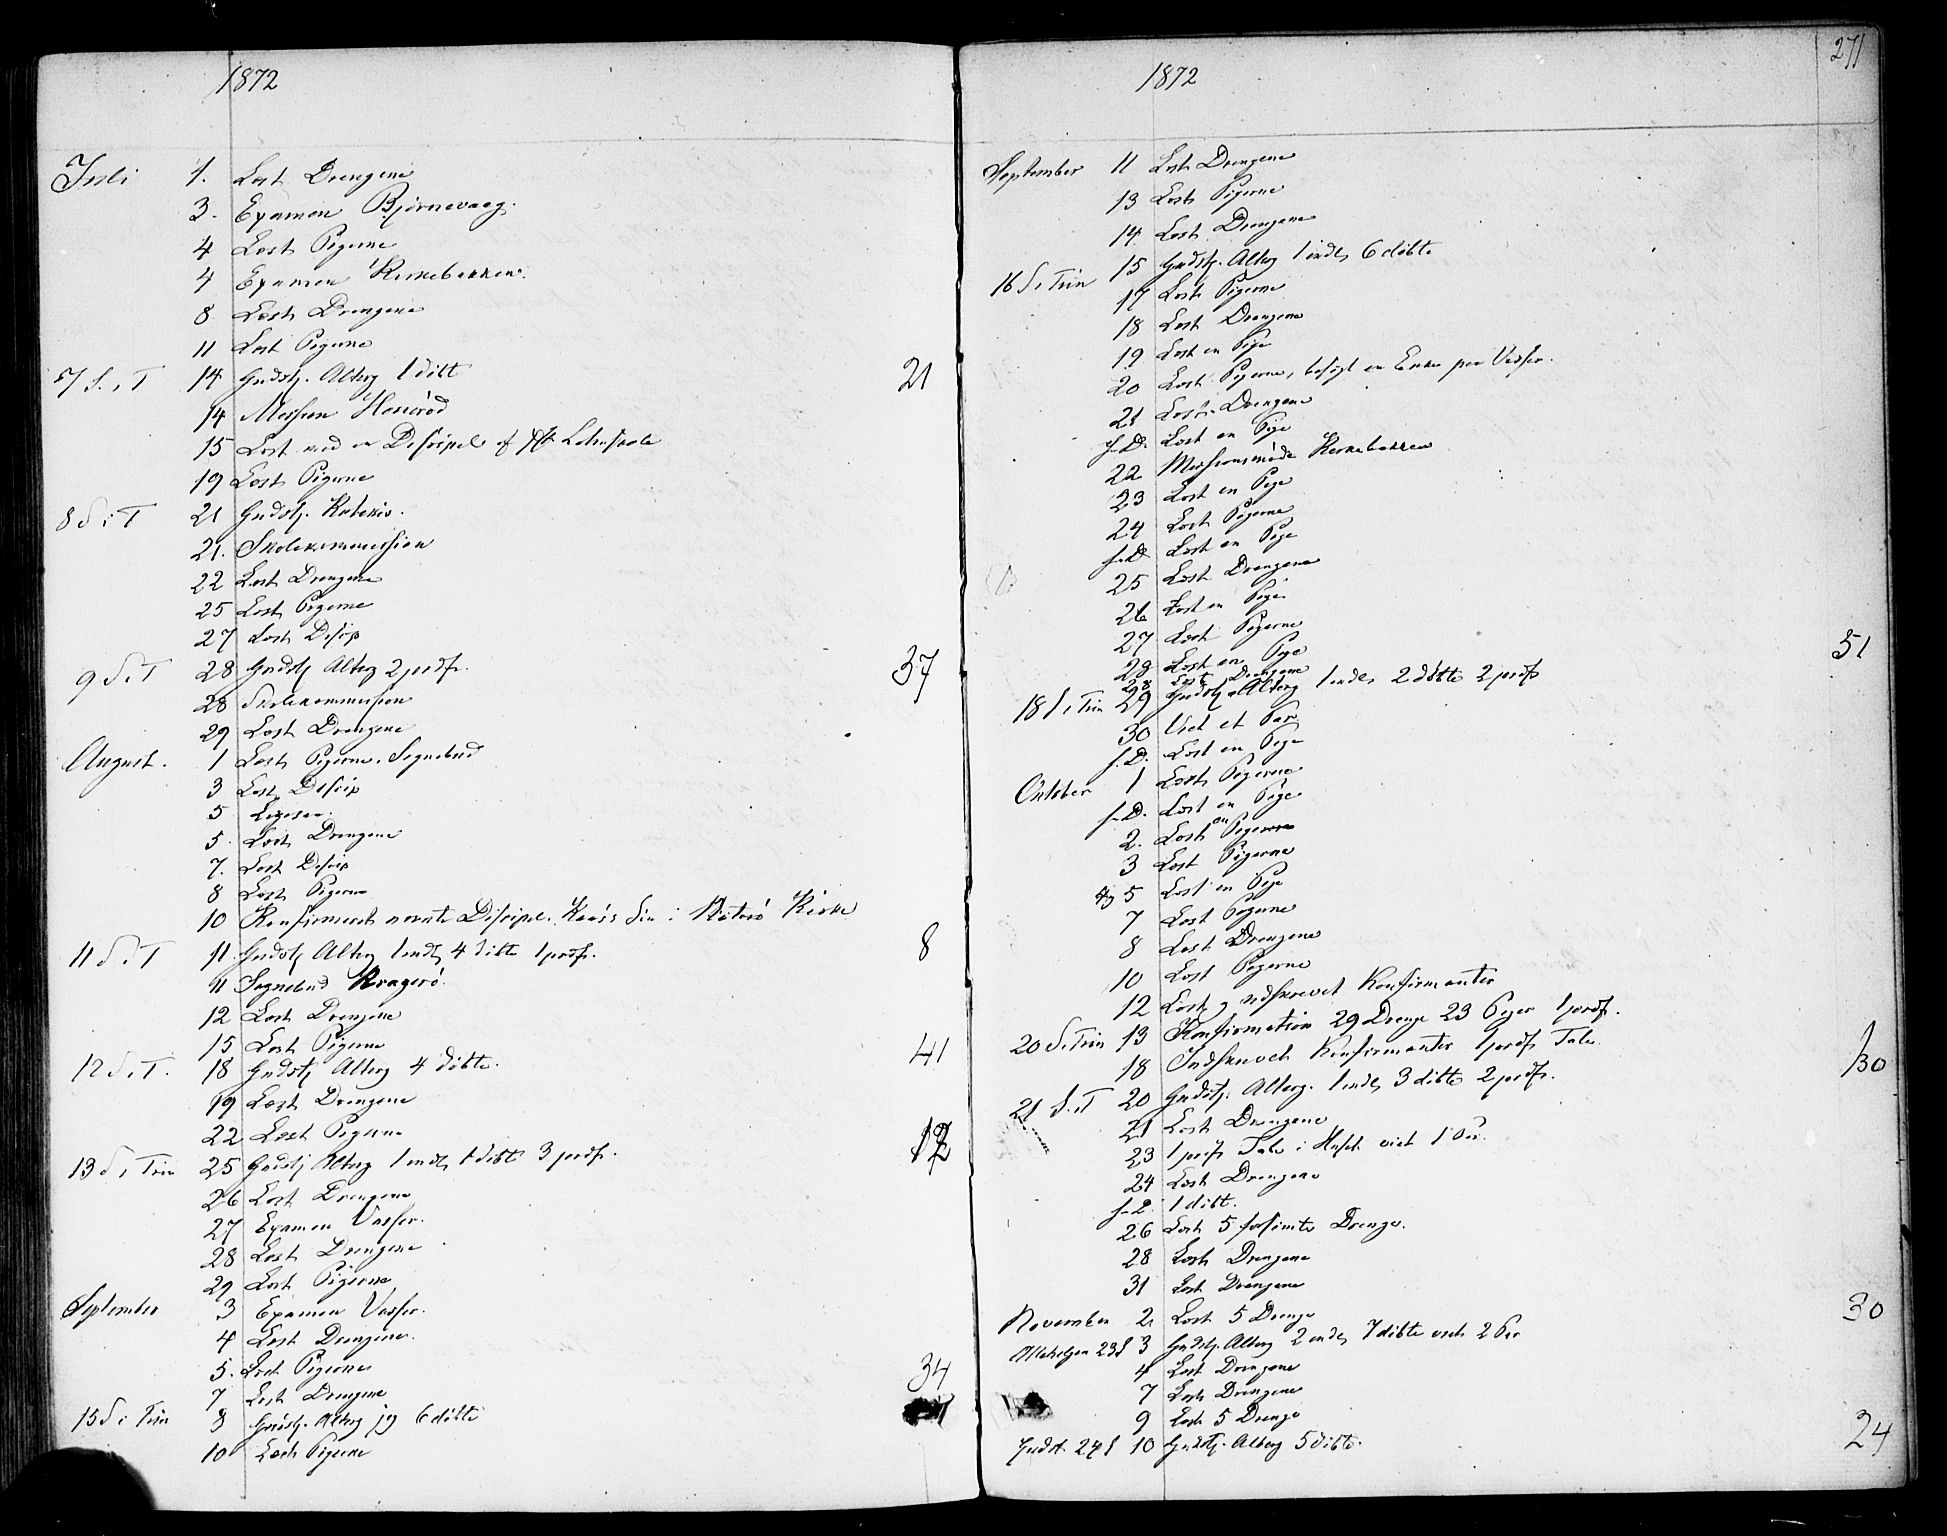 1872
Juli 1. Læst Drengene
3. Examen Bjørnevaag.
4 Læst Pigerne
4 Examen Kirkebakken.
8 Læst Drengene
11 Læst Pigerne
7 S. i T 14 Gudstj. Alterg 1 døbt 21
14 Mission
15 Læst med en Discipel af
19 Læst Pigerne
8 S i T 21 Gudstj. Katekis.
21. Skolekommission
22 Læst Drengene
25 Læst Pigerne
27 Læst Discip
9 S i T 28 Gudstj Alterg 2 præs. 37
28 Skolekommission
29 Læst Drengene
August. 1 Læst Pigerne. Sognebud
3 Læst Discip
5
5. Læst Drengene
7. Læst Discip
8 Læst Pigerne
10 Konfirmeret nævnte Discipel. i Kirke
11 S i T 11 Gudstj Alterg 1 indl, 4 døbte 1 præs. 8
11 Sognebud Kragerø.
12 Læst Drengene
15 Læst Pigerne
12 S i T. 18 Gudstj Alterg 4 døbte. 41
19 Læst Drengene
22 Læst Pigerne
13 S i Trin 25 Gudstj Alterg 1 indl, 1 døbt 3 præs. 12
26 Læst Drengene
27 Examen Vasser.
28 Læst Drengene
29 Læst Pigerne
September 3 Examen Vasser.
4 Læst Drengene.
5. Læst Pigerne
7 Læst Drengene 34
15 S i Trin 8 Gudstj. Alterg 6 døbte
10 Læst Pigerne
271
1872
September 11 Læst Drengene
13 Læst Pigerne
14 Læst Drengene
16 S i Trin 15 Gudstj. Alterg 1 indl, 6 døbte
17 Læst Pigerne
18 Læst Drengene
19 Læst en Pige
20 Læst Pigerne, besøgt en Enke paa Vasser.
21 Læst Drengene
s. D. Læst en Pige
22 Missionsmøde Kirkebakken
23 Læst en Pige
24 Læst Pigerne
s. D. Læst en Pige
25 Læst Drengene
26 Læst en Pige
27 Læst Pigerne
28 Læst en Pige 51
28 Læst Drengene
18 S i Trin 29 Gudstj Alterg 1 indl, 2 døbte 2 præs
30 Viet et Par
s. D. Læst en Pige
Oktober 1 Læst Pigerne
s. D. Læst en Pige
2. Læst en Pige
3 Læst Pigerne
og 5 Læst en Pige
7 Læst Pigerne
8 Læst Drengene
10 Læst Pigerne
12 Læst og indskrevet Konfirmanter
20 S i Trin 13 Konfirmation 29 Drenge 23 Piger 1 præs.
18 Indskrevet Konfirmanter 1 præs Tale. 130
21 S. i T 20 Gudstj. Alterg. 1 indl, 3 døbte 2 præs.
21 Læst Drengene
23 1 præs Tale i Huset viet 1 Par.
24 Læst Drengene
s. D. 1 døbt.
26 Læst 5 forsømte Drenge.
28 Læst Drengene
31 Læst Drengene
November 2 Læst 5 Drenge 30
Allehelgen 23 S 3 Gudstj. Alterg 2 indl, 7 døbte viet 2 Par
4 Læst Drengene
7 Læst Drengene
9 Læst 5 Drenge
Gudst. 24 S 10 Gudstj. Alterg 5 døbte. 24